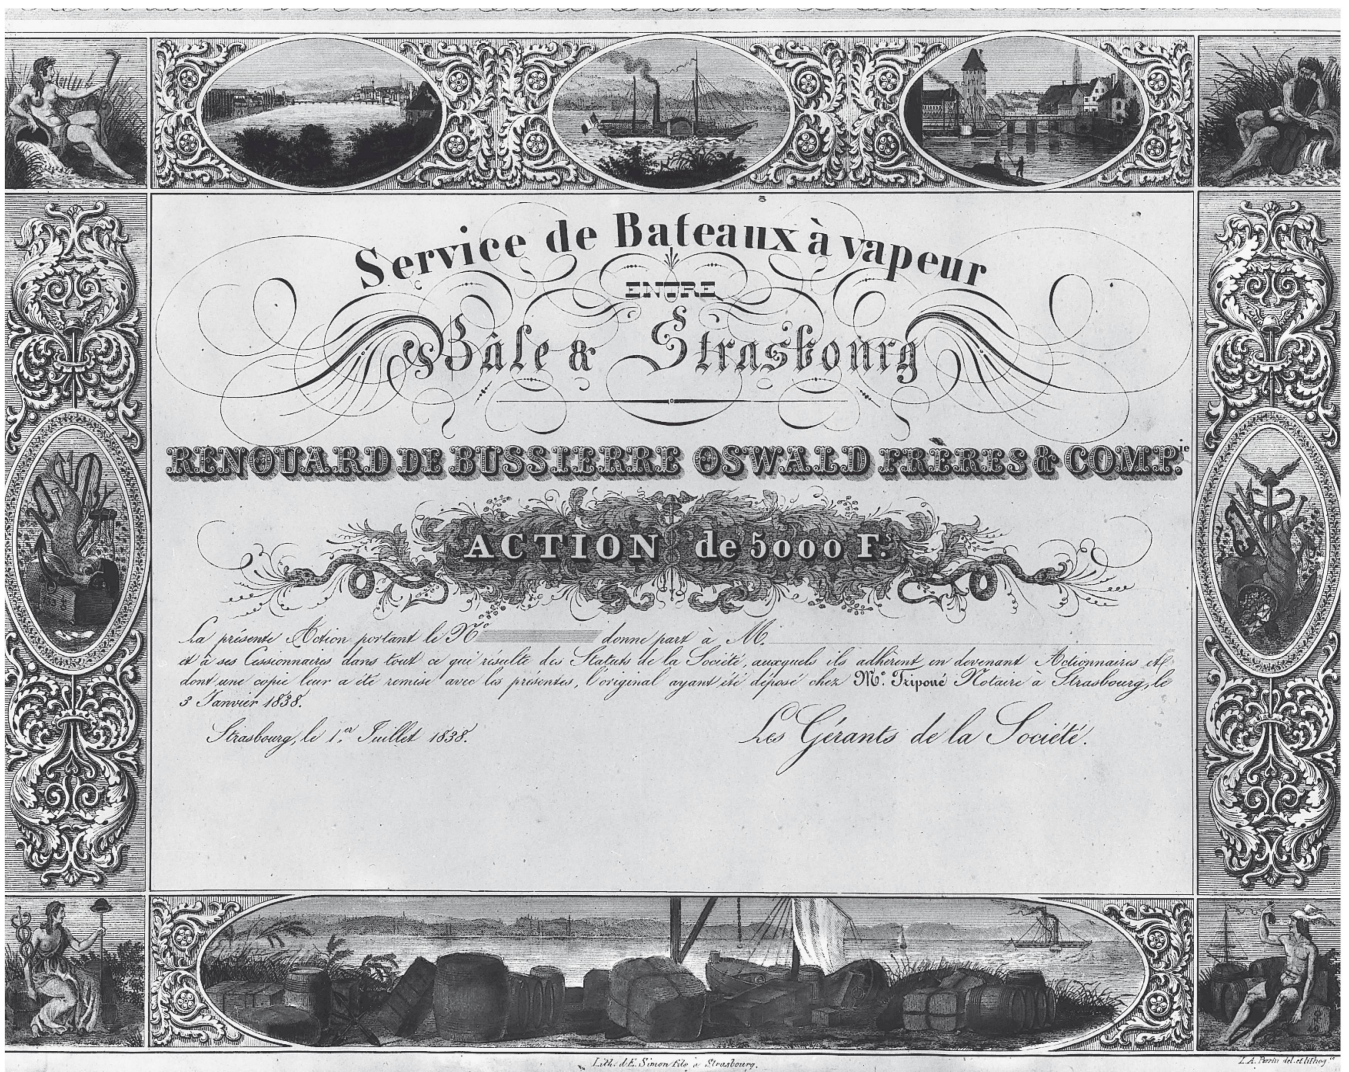 Service de Bateaux à vapeur
ENTRE
Bâle & Strasbourg
RENOUARD DE BUSSIERRE OSWALD FRÈRES & COMP.ie
ACTION de 5000 F.
La présente Action portant le No donne part à M.
et à ses Cessionnaires dans tout ce qui résulte des Statuts de la Société, auxquels ils adhèrent en devenant Actionnaires et
dont une copie leur a été remise avec les présentes, l'original ayant été déposé chez Me Triponé Notaire à Strasbourg, le
3 Janvier 1838.
Strasbourg, le 1.er Juillet 1838.
Les Gérants de la Société.
Lith. d'E. Simon fils à Strasbourg.
del. et lithog.